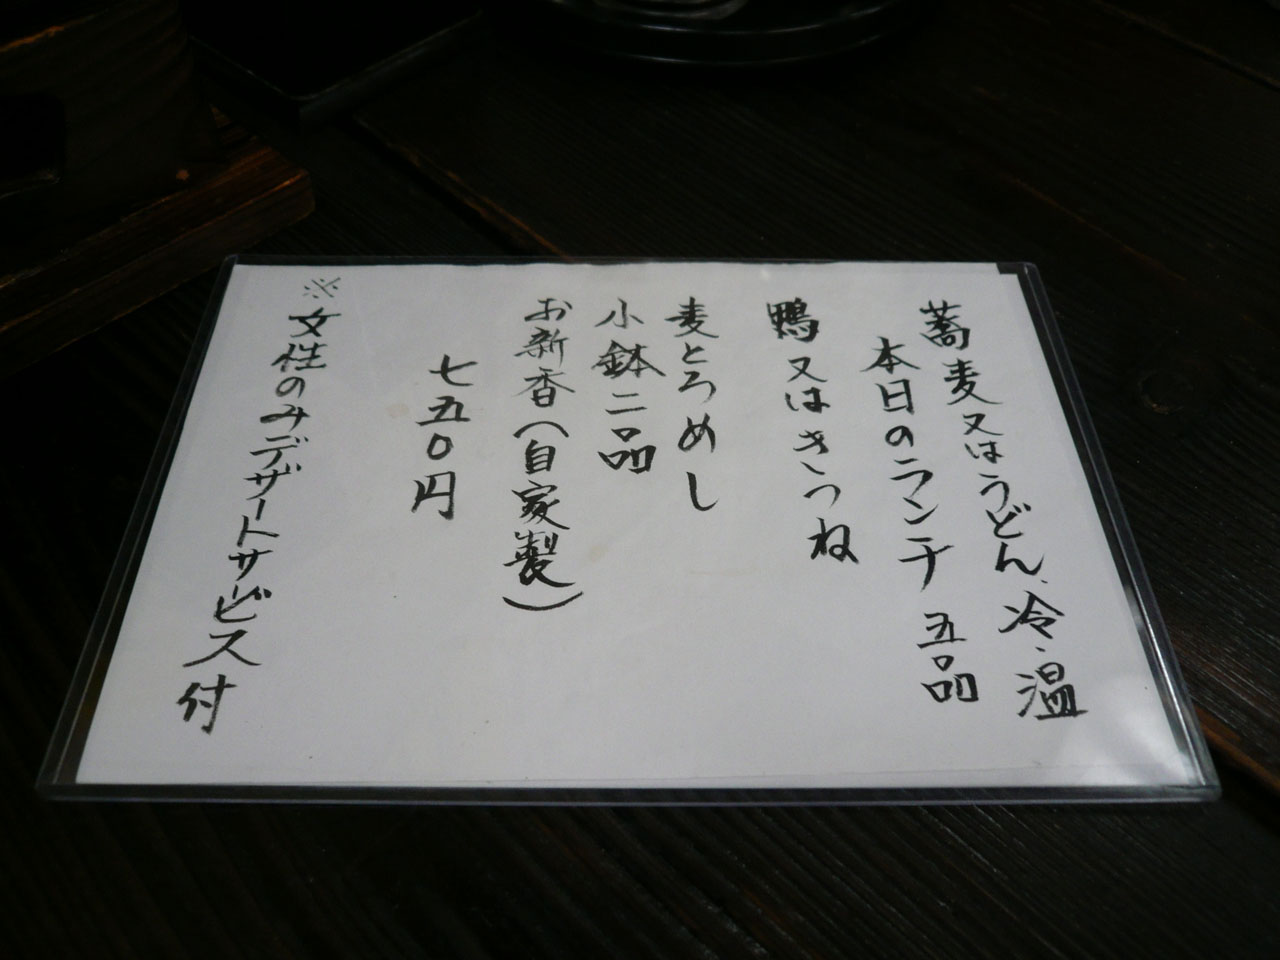 蕎麦又はうどん、冷・温
本日のランチ 五品
鴨又はきつね
麦とろめし
小鉢二品
お新香(自家製)
七五〇円
※女性のみデザートサービス付